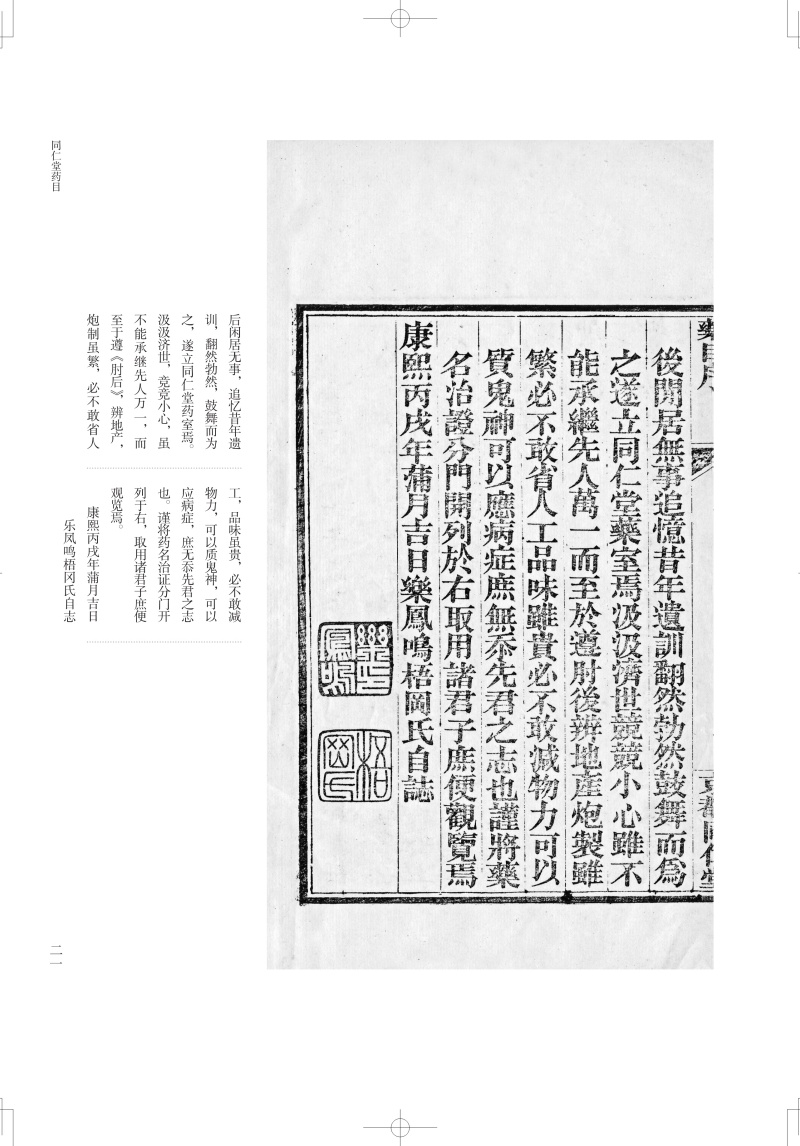 後閒居無事追憶昔年遺訓翻然勃然鼓舞而為
之遂立同仁堂藥室焉汲汲濟世競競小心雖不
能承繼先人萬一而至於遵肘後辨地產炮製雖
繁必不敢省人工品味雖貴必不敢減物力可以
質鬼神可以應病症庶無忝先君之志也謹將藥
名治證分門開列於右取用諸君子庶便觀覽焉
康熙丙戌年蒲月吉日樂鳳鳴梧岡氏自誌
后闲居无事，追忆昔年遗
训，翻然勃然，鼓舞而为
之，遂立同仁堂药室焉。
汲汲济世，竞竞小心，虽
不能承继先人万一，而
至于遵《肘后》，辨地产，
炮制虽繁，必不敢省人
工，品味虽贵，必不敢减
物力，可以质鬼神，可以
应病症，庶无忝先君之志
也。谨将药名治证分门开
列于右，取用诸君子庶便
观览焉。
康熙丙戌年蒲月吉日
乐凤鸣梧冈氏自志
同仁堂药目
二一